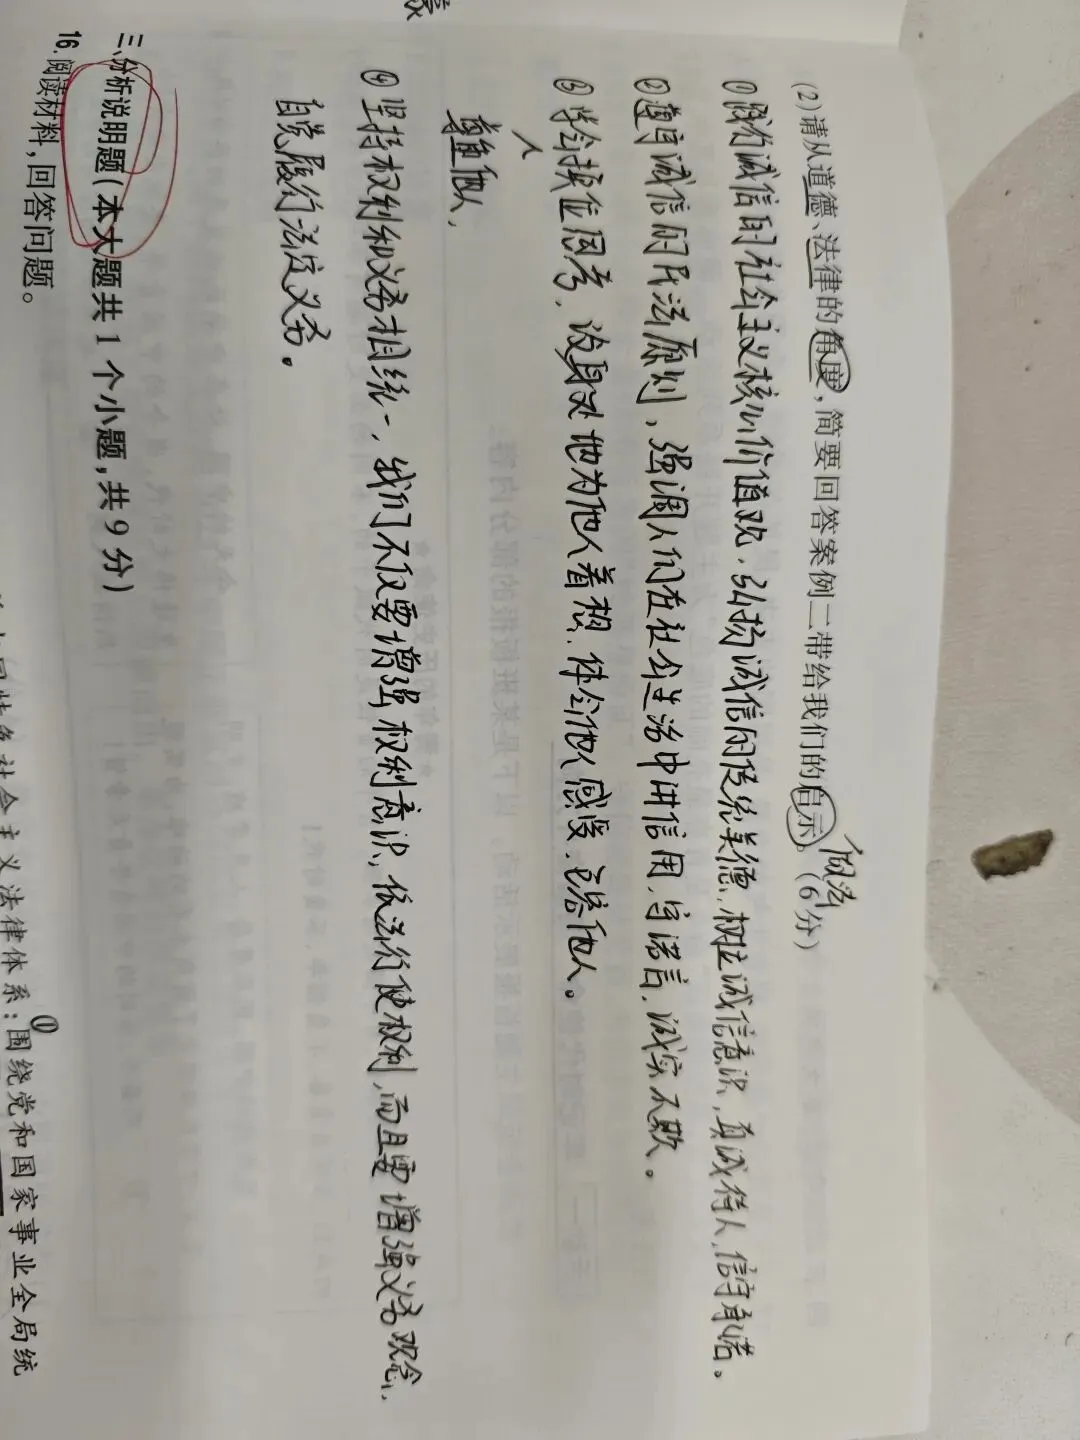 (2)请从道德、法律的角度,简要回答案例二带给我们的启示。(6分)
做法
①践行诚信的社会主义核心价值观,弘扬诚信的传统美德,树立诚信意识,真诚待人,信守承诺。
②遵守诚信的民法原则,强调人们在社会生活中讲信用,守诺言,诚实不欺。
③学会换位思考,设身处地为他人着想,体会他人感受,宽容他人。
尊重他人,
④坚持权利和义务相统一,我们不仅要增强权利意识,依法行使权利,而且要增强义务观念,
自觉履行法定义务。
三、分析说明题(本大题共1个小题,共9分)
16.阅读材料,回答问题。
社会主义法律体系:①围绕党和国家事业全局统